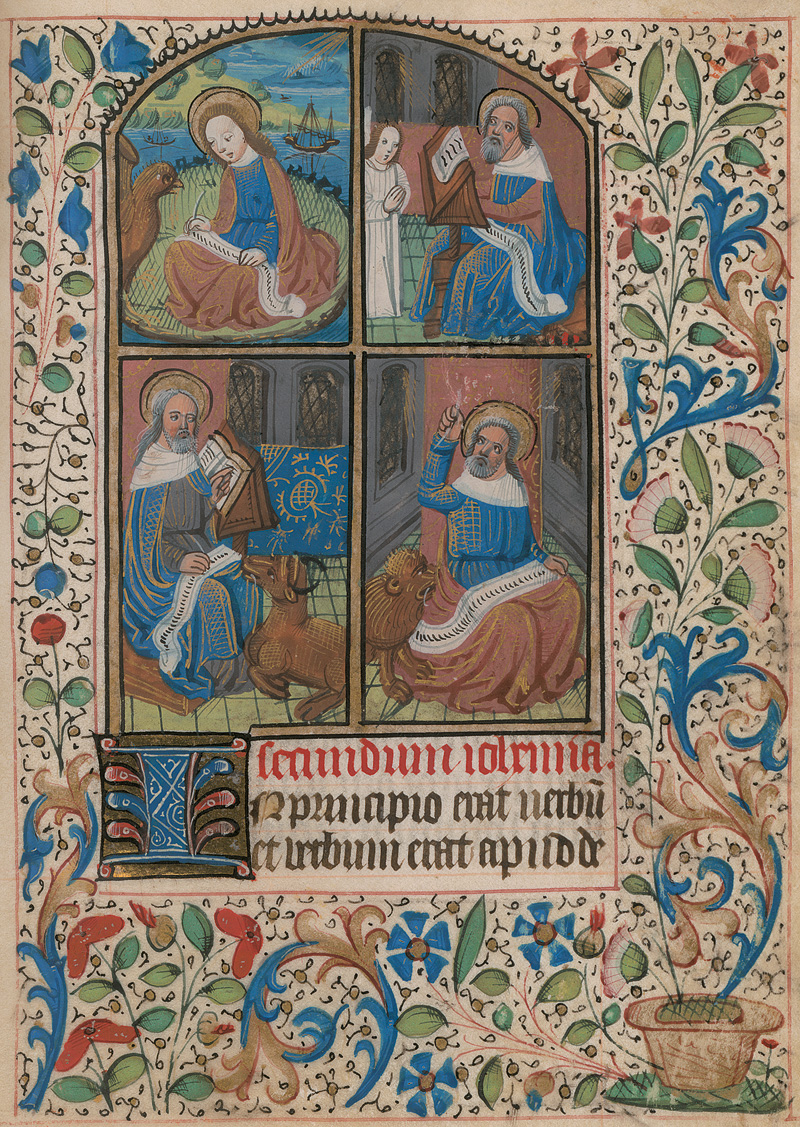 secundum iohenna.
In principio erat uerbū
et verbum erat apud de